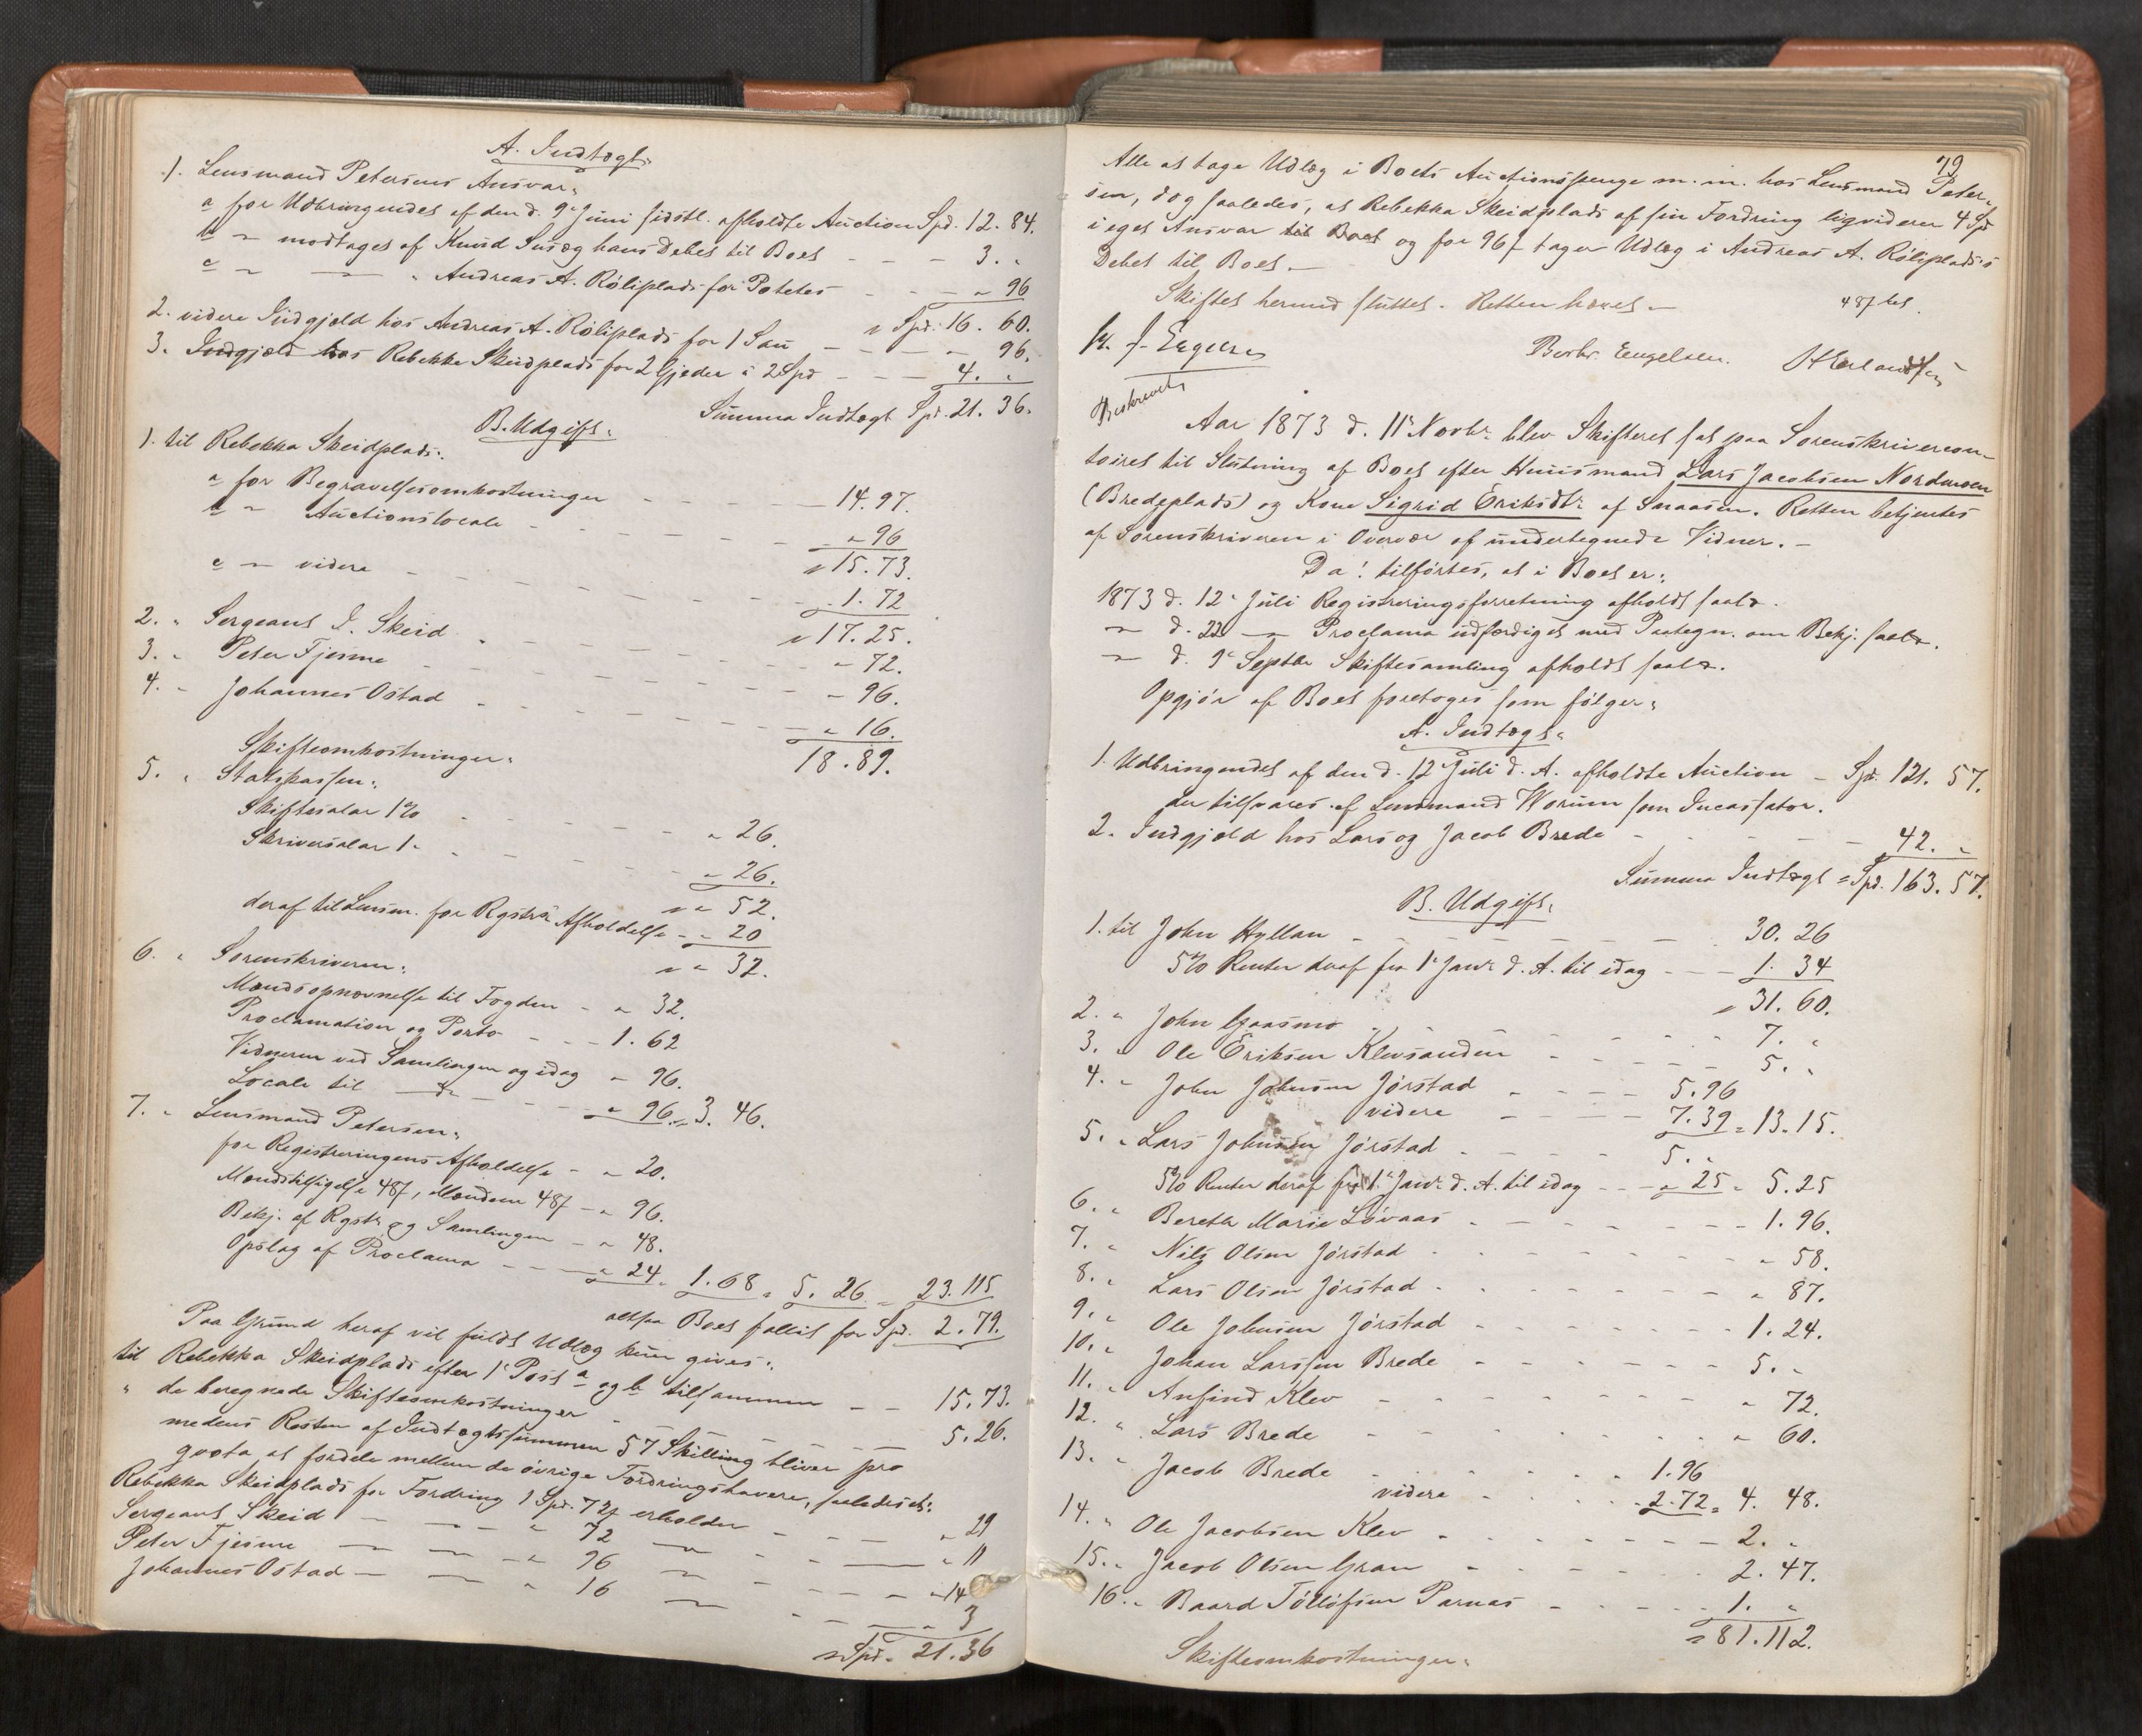 A. Indtægt:
1. Lensmand Petersens Ansvar:
a for Udbringendet af den d. 9de Juni sidstl. afholdte Auction Spd. 12. 84.
b " modtaget af Knud Susæg hans Debet til Boet - - - 3. "
c " — " Andreas A. Röliplads for Potetes - - - " 96
= Spd. 16. 60.
2. videre Indgjæld hos Andreas A. Röliplads for 1 Sau - - - - 96.
3. Indgjæld hos Rebekka Skeidplads for 2 Gjeder à 2 Spd - - - 4. "
Summa Indtægt Spd. 21. 36.
B. Udgift:
1. til Rebekka Skeidplads:
a for Begravelsesomkostninger - - - - 14. 97.
b " Auctionslocale - - - - - " 96
= 15. 73.
c " videre - - - - - - 1. 72
= 17. 25.
2. " Sergeant I. Skeid - - - - - - " 72.
3. " Peter Fjesme - - - - - - " 96.
4. " Johannes Ostad - - - - - - " 16.
18. 89.
Skifteomkostninger:
5. " Statskassen:
Skiftesalar 1% - - - - - " 26.
Skriversalar 1 " - - - - " 26.
= " 52.
deraf til Lensm. for Rgstrs Afholdelse - " 20
= " 32.
6. " Sorenskriveren:
Mændsopnævnelse til Fogden - " 32.
Proclamation og Porto - - - 1. 62
Vidnerne ved Samlingen og idag " 96.
Locale til — do — - - - " 96. = 3. 46.
7. " Lensmand Petersen:
for Registreringens Afholdelse - " 20.
Mændstilsigelse 48 f, Mændene 48 f - " 96.
Bekj. af Rgstr. og Samlingen - " 48.
Opslag af Proclama - - - " 24. = 1. 68 = 5. 26 = 23. 115
altsaa Boet fallit for Spd. 2. 79.
Paa Grund heraf vil fuldt Udlæg kun gives:
til Rebekka Skeidplads efter 1ste Post a og b tilsammen - - 15. 73.
" de beregnede Skifteomkostninger - - - - - 5. 26.
medens Resten af Indtægtssummen 57 Skilling bliver pro
qvota at fordele mellem de övrige Fordringshavere, saaledes at:
Rebekka Skeidplads for Fordring 1 Spd. 72 f erholder - - - " 29
Sergeant Skeid — — — " 72 — - - - " 11
Peter Fjesme — — — " 96 — - - - " 14
Johannes Ostad — — " 16 — - - - " 3
= Spd. 21. 36
79
Alle at tage Udlæg i Boets Auctionspenge m. m. hos Lensmand Peter-
sen, dog saaledes, at Rebekka Skeidplads af sin Fordring liqviderer 4 Spd
i eget Ansvar til Boet og for 96 f tager Udlæg i Andreas A. Röliplads's
Debet til Boet. —
Skiftet hermed sluttet. Retten hævet. —
48 f bet.
Fr. J. Eegeren
Berhr. Engelsen. H Erlandsen
Beskrevet
Aar 1873 d. 11te Novbr. blev Skifteret sat paa Sorenskrivercon-
toiret til Slutning af Boet efter Huusmand Lars Jacobsen Nordmoen
(Bredeplads) og Kone Sigrid Eriksdtr. af Snaasen. Retten betjentes
af Sorenskriveren i Overvær af undertegnede Vidner. —
Da! tilförtes, at i Boet er:
1873 d. 12te Juli Registreringsforretning afholdt saal.
" d. 22 " Proclama udfærdiget med Paategn. om Bekj. saal.
" d. 9de Septbr. Skiftesamling afholdt saal.
Opgjör af Boet foretoges som fölger:
A. Indtægt:
1. Udbringendet af den d. 12te Juli d. A. afholdte Auction - Spd. 121. 57.
der tilsvares af Lensmand Worum som Incassator.
2. Indgjæld hos Lars og Jacob Brede - - - - - 42. "
Summa Indtægt = Spd. 163. 57.
B. Udgift:
1. til John Hyllan - - - - - - - 30. 26
5% Renter deraf fra 1ste Janr. d. A. til idag - - - 1. 34
= 31. 60.
2. " John Gaasmo - - - - - - 7. "
3. " Ole Eriksen Klevsanden - - - - - 5. "
4. " John Johnsen Jörstad - - - - 5. 96
videre - - - - 7. 39 = 13. 15.
5. " Lars Johnsen Jörstad - - - - 5. "
5% Renter deraf fra 1ste Janr. d. A. til idag - - " 25 = 5. 25
6. " Bereth Marie Lövaas - - - - - - 1. 96.
7. " Nils Olsen Jörstad - - - - - - " 58.
8. " Lars Olsen Jörstad - - - - - - " 87.
9. " Ole Johnsen Jörstad - - - - - - 1. 24.
10. " Johan Larssen Brede - - - - - - 5. "
11. " Anfind Klev - - - - - - " 72.
12. " Lars Brede - - - - - - " 60.
13. " Jacob Brede - - - - - 1. 96
videre - - - - 2. 72 = 4. 48.
14. " Ole Jacobsen Klev - - - - - - 2. "
15. " Jacob Olsen Gran - - - - - - 2. 47.
16. " Baard Töllöfsen Parnas - - - - - 1. "
= 81. 112.
Skifteomkostninger: